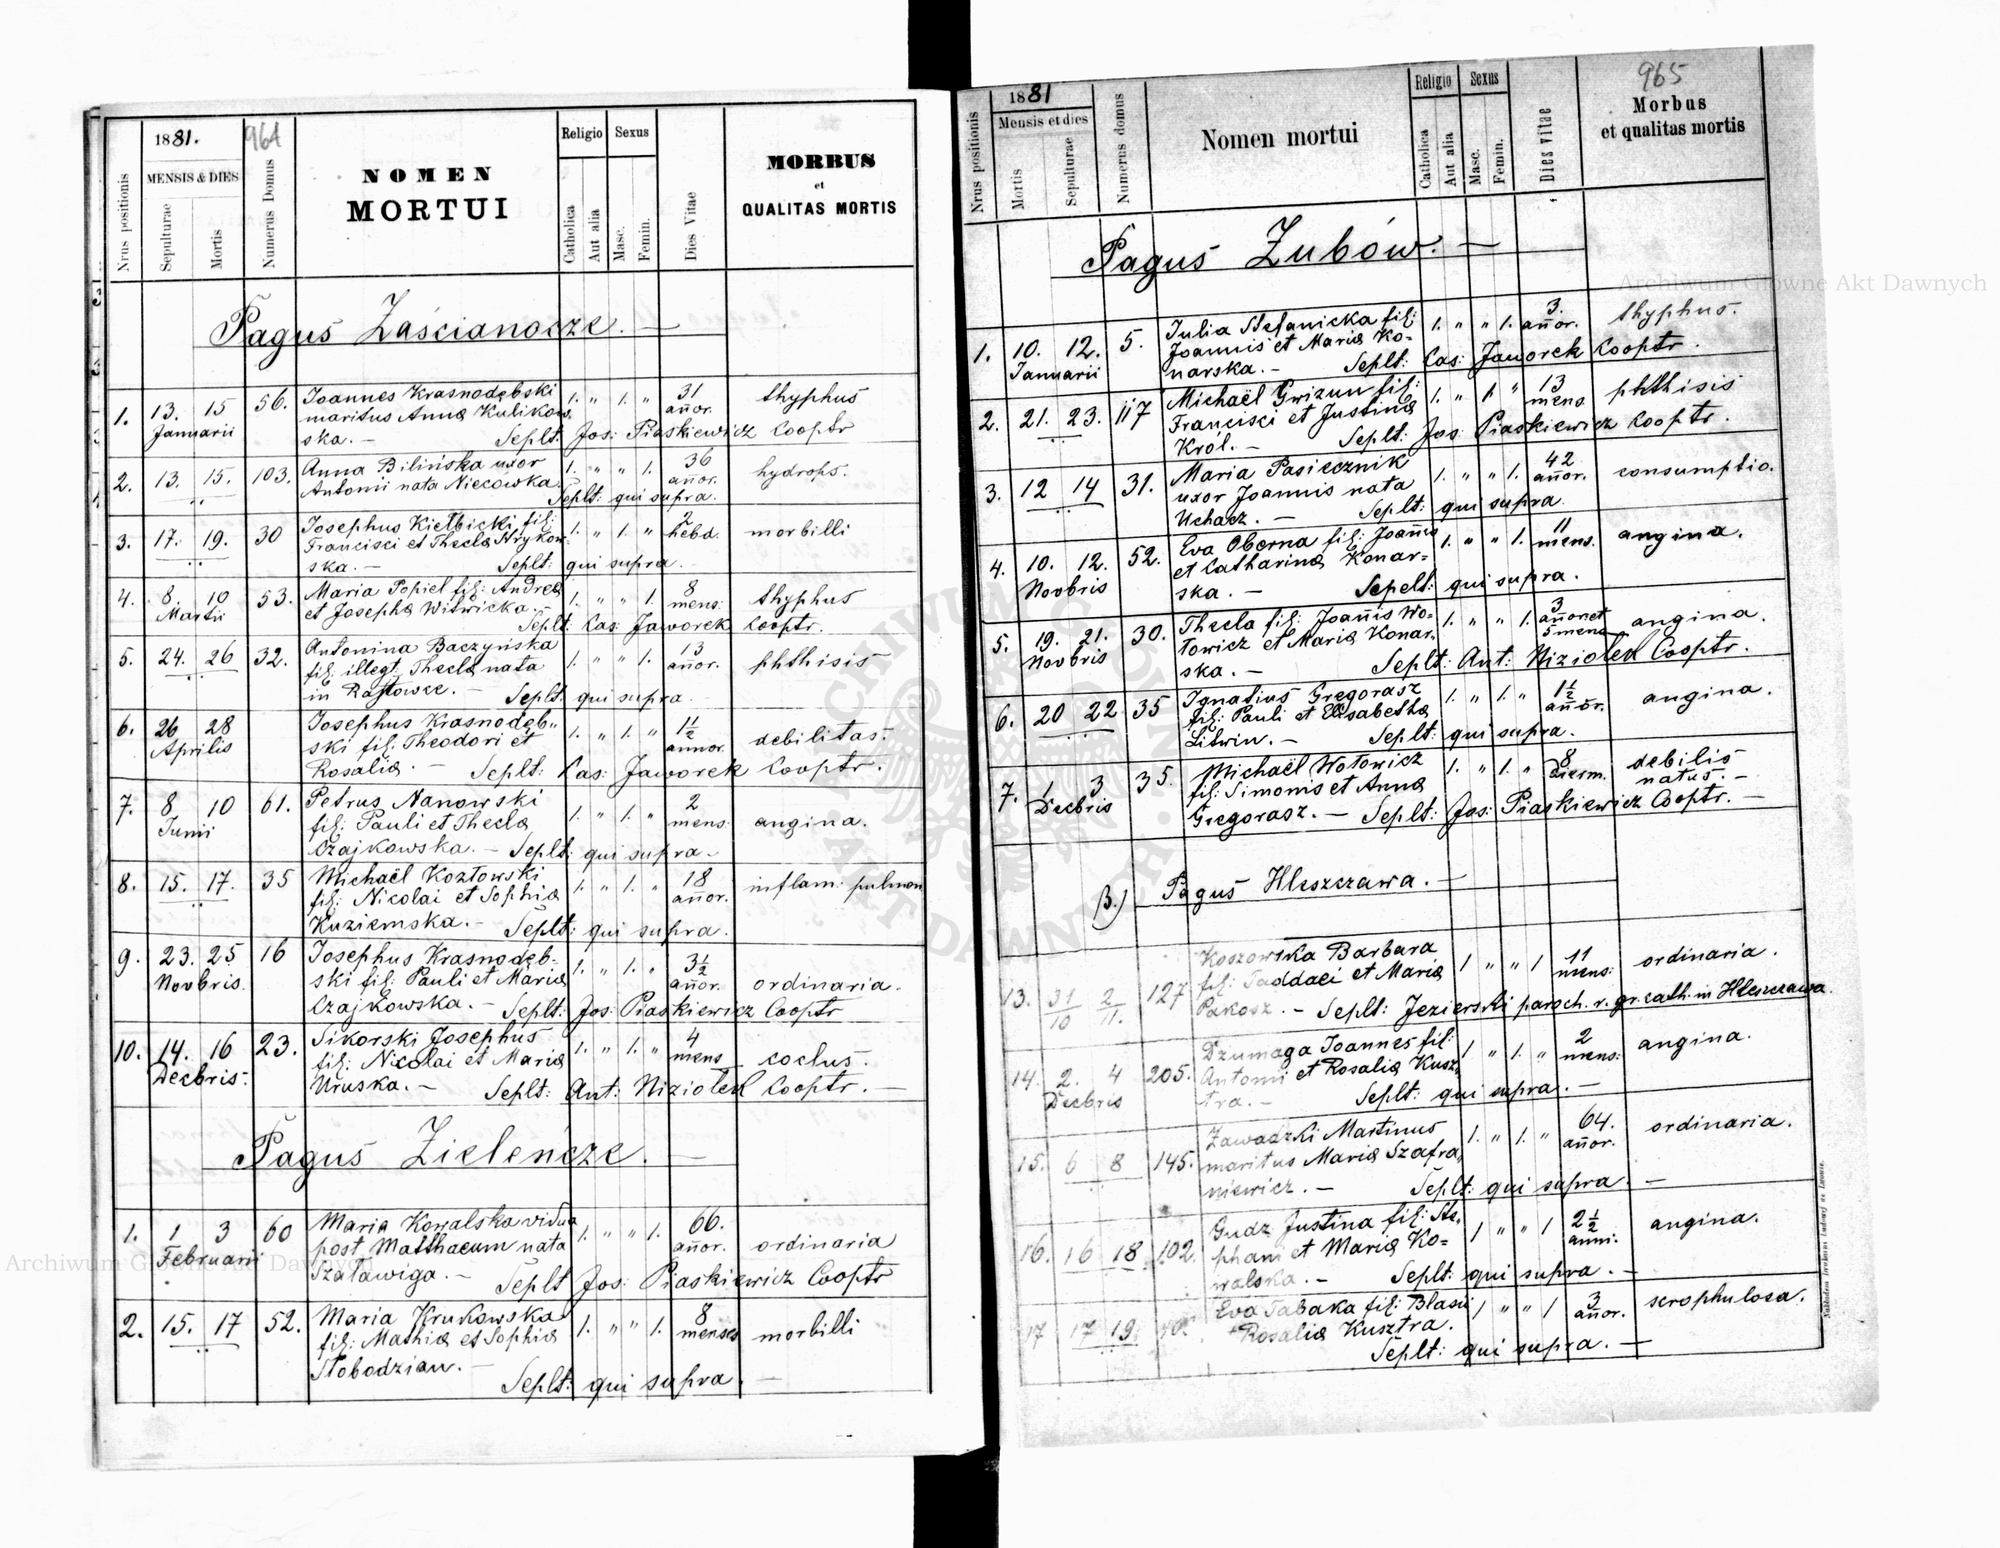 1881.
964
Nrus positionis
MENSIS & DIES
Sepulturae
Mortis
Numerus Domus
NOMEN
MORTUI
Religio
Sexus
Catholica
Aut alia
Masc.
Femin.
Dies Vitae
MORBUS
et
QUALITAS MORTIS
Pagus Zaścianocze. —
1. 13. 15 56. Joannes Krasnodębski 1. " 1. " 31 thyphus
Januarii maritus Anna Kulikow- añor.
ska. — Seplt: Jos: Piaskiewicz Cooptr
2. 13. 15. 103. Anna Bilińska uxor 1. " " 1. 36 hydrops.
Antonii nata Niecówka. añor.
Seplt: qui supra.
3. 17. 19. 30 Josephus Kiełbicki fil: 1. " 1. " 2 morbilli
Francisci et Thecla hebd.
ska. — Seplt: qui supra.
4. 8. 10 53. Maria Popiel fil: Andrea 1. " " 1. 8 thyphus
Martii et Josepha Witwicka. mens:
Seplt: Cas: Jaworek Cooptr.
5. 24. 26 32. Antonina Baczyńska 1. " " 1. 13 phthisis
fil: illegt. Thecla nata añor.
in — Seplt: qui supra.
6. 26 28 Josephus Krasnodęb- 1. " 1. " 1½ debilitas.
Aprilis ski fil: Theodori et annor.
Rosalia. — Seplt: Cas: Jaworek Cooptr.
7. 8 10 61. Petrus Nanowski 1. " 1. " 2 angina.
Junii fil: Pauli et Thecla mens:
Czajkowska. — Seplt: qui supra —
8. 15. 17. 35 Michaël Kozłowski 1. " 1. " 18 inflam: pulmon
fil: Nicolai et Sophia añor.
Kuziemska. — Seplt: qui supra.
9. 23. 25 16 Josephus Krasnodęb- 1. " 1. " 3½ ordinaria.
Novbris. ski fil: Pauli et Maria añor.
Czajkowska. — Seplt: Jos: Piaskiewicz Cooptr
10. 14. 16 23. Sikorski Josephus 1. " 1. " 4 coelus.
Decbris. fil: Nicolai et Maria mens
Uruska. — Seplt: Ant: Niziołek Cooptr. —
Pagus Zieleńcze. —
1. 1 3 60 Maria Kowalska vidua 1. " " 1. 66. ordinaria
Februarii post Matthaeum nata añor.
Szaławiga. — Seplt Jos: Piaskiewicz Cooptr
2. 15. 17 52. Maria Krukowska 1. " " 1. 8 morbilli
fil: Mathia et Sophia menses
Słobodzian. — Seplt: qui supra. —
965
1881
Nrus positionis
Mensis et dies
Mortis
Sepulturae
Numerus domus
Nomen mortui
Religio
Sexus
Catholica
Aut alia
Masc.
Femin.
Dies vitae
Morbus
et qualitas mortis
Pagus Zubów. —
1. 10. 12. 5. Julia Stefanicka fil: 1. " " 1. 3. thyphus.
Januarii Joannis et Maria Ko- añor.
narska. — Seplt: Cas: Jaworek Cooptr.
2. 21. 23. 117 Michaël Gwizun fil: 1. " 1. " 13 phthisis
Francisci et Justina mens
Król. — Seplt: Jos: Piaskiewicz Cooptr.
3. 12 14 31. Maria Pasiecznik 1. " " 1. 42 consumptio.
uxor Joannis nata añor.
Uchacz. — Seplt: qui supra
4. 10. 12. 52. Eva Oberna fil: Joañis 1. " " 1. 11 angina.
Novbris et Catharina Konar- mens.
ska. — Sepelt: qui supra.
5. 19. 21. 30. Thecla fil: Joañis Wo- 1. " " 1. 3 angina.
Novbris towicz et Maria Konar- añor. et 5 mens
ska. — Seplt: Ant: Niziołek Cooptr.
6. 20 22 35 Ignatius Gregorasz 1. " 1. " 1½ angina.
fil: Pauli et Elisabetha añor.
Litwin. — Seplt: qui supra.
7. 1 3 35. Michaël Wotowicz 1. " 1. " 8 debilis
Decbris fil: Simonis et Anna dierm. natus. —
Gregorasz. — Seplt: Jos: Piaskiewicz Cooptr. —
B.) Pagus Hleszczawa. —
13. 31/10 2/11. 127 Koszowska Barbara 1 " " 1 11 ordinaria.
fil: Taddaei et Maria mens:
Pakosz. — Seplt: Jezierski paroch. r. gr. cath: in Hleszczawa.
14. 2. 4 205. Dzumaga Joannes fil: 1 " 1. " 2 angina.
Decbris Antoni et Rosalia Kusz- mens:
tra. — Seplt: qui supra. —
15. 6 8 145. Zawadzki Martinus 1. " 1. " 64. ordinaria.
maritus Maria Szafra- añor.
niewicz. — Seplt: qui supra. —
16. 16 18 102. Gudz Justina fil: Ste- 1 " " 1 2½ angina.
phani et Maria Ko- anni.
walska. — Seplt: qui supra. —
17 17 19. Eva Tabaka fil: Blasii 1 " " 1 3 scrophulosa.
+ Rosalia Kusztra. añor.
Seplt: qui supra. —
Archiwum Główne Akt Dawnych
Archiwum Główne Akt Dawnych
ARCHIWUM GŁÓWNE AKT DAWNYCH